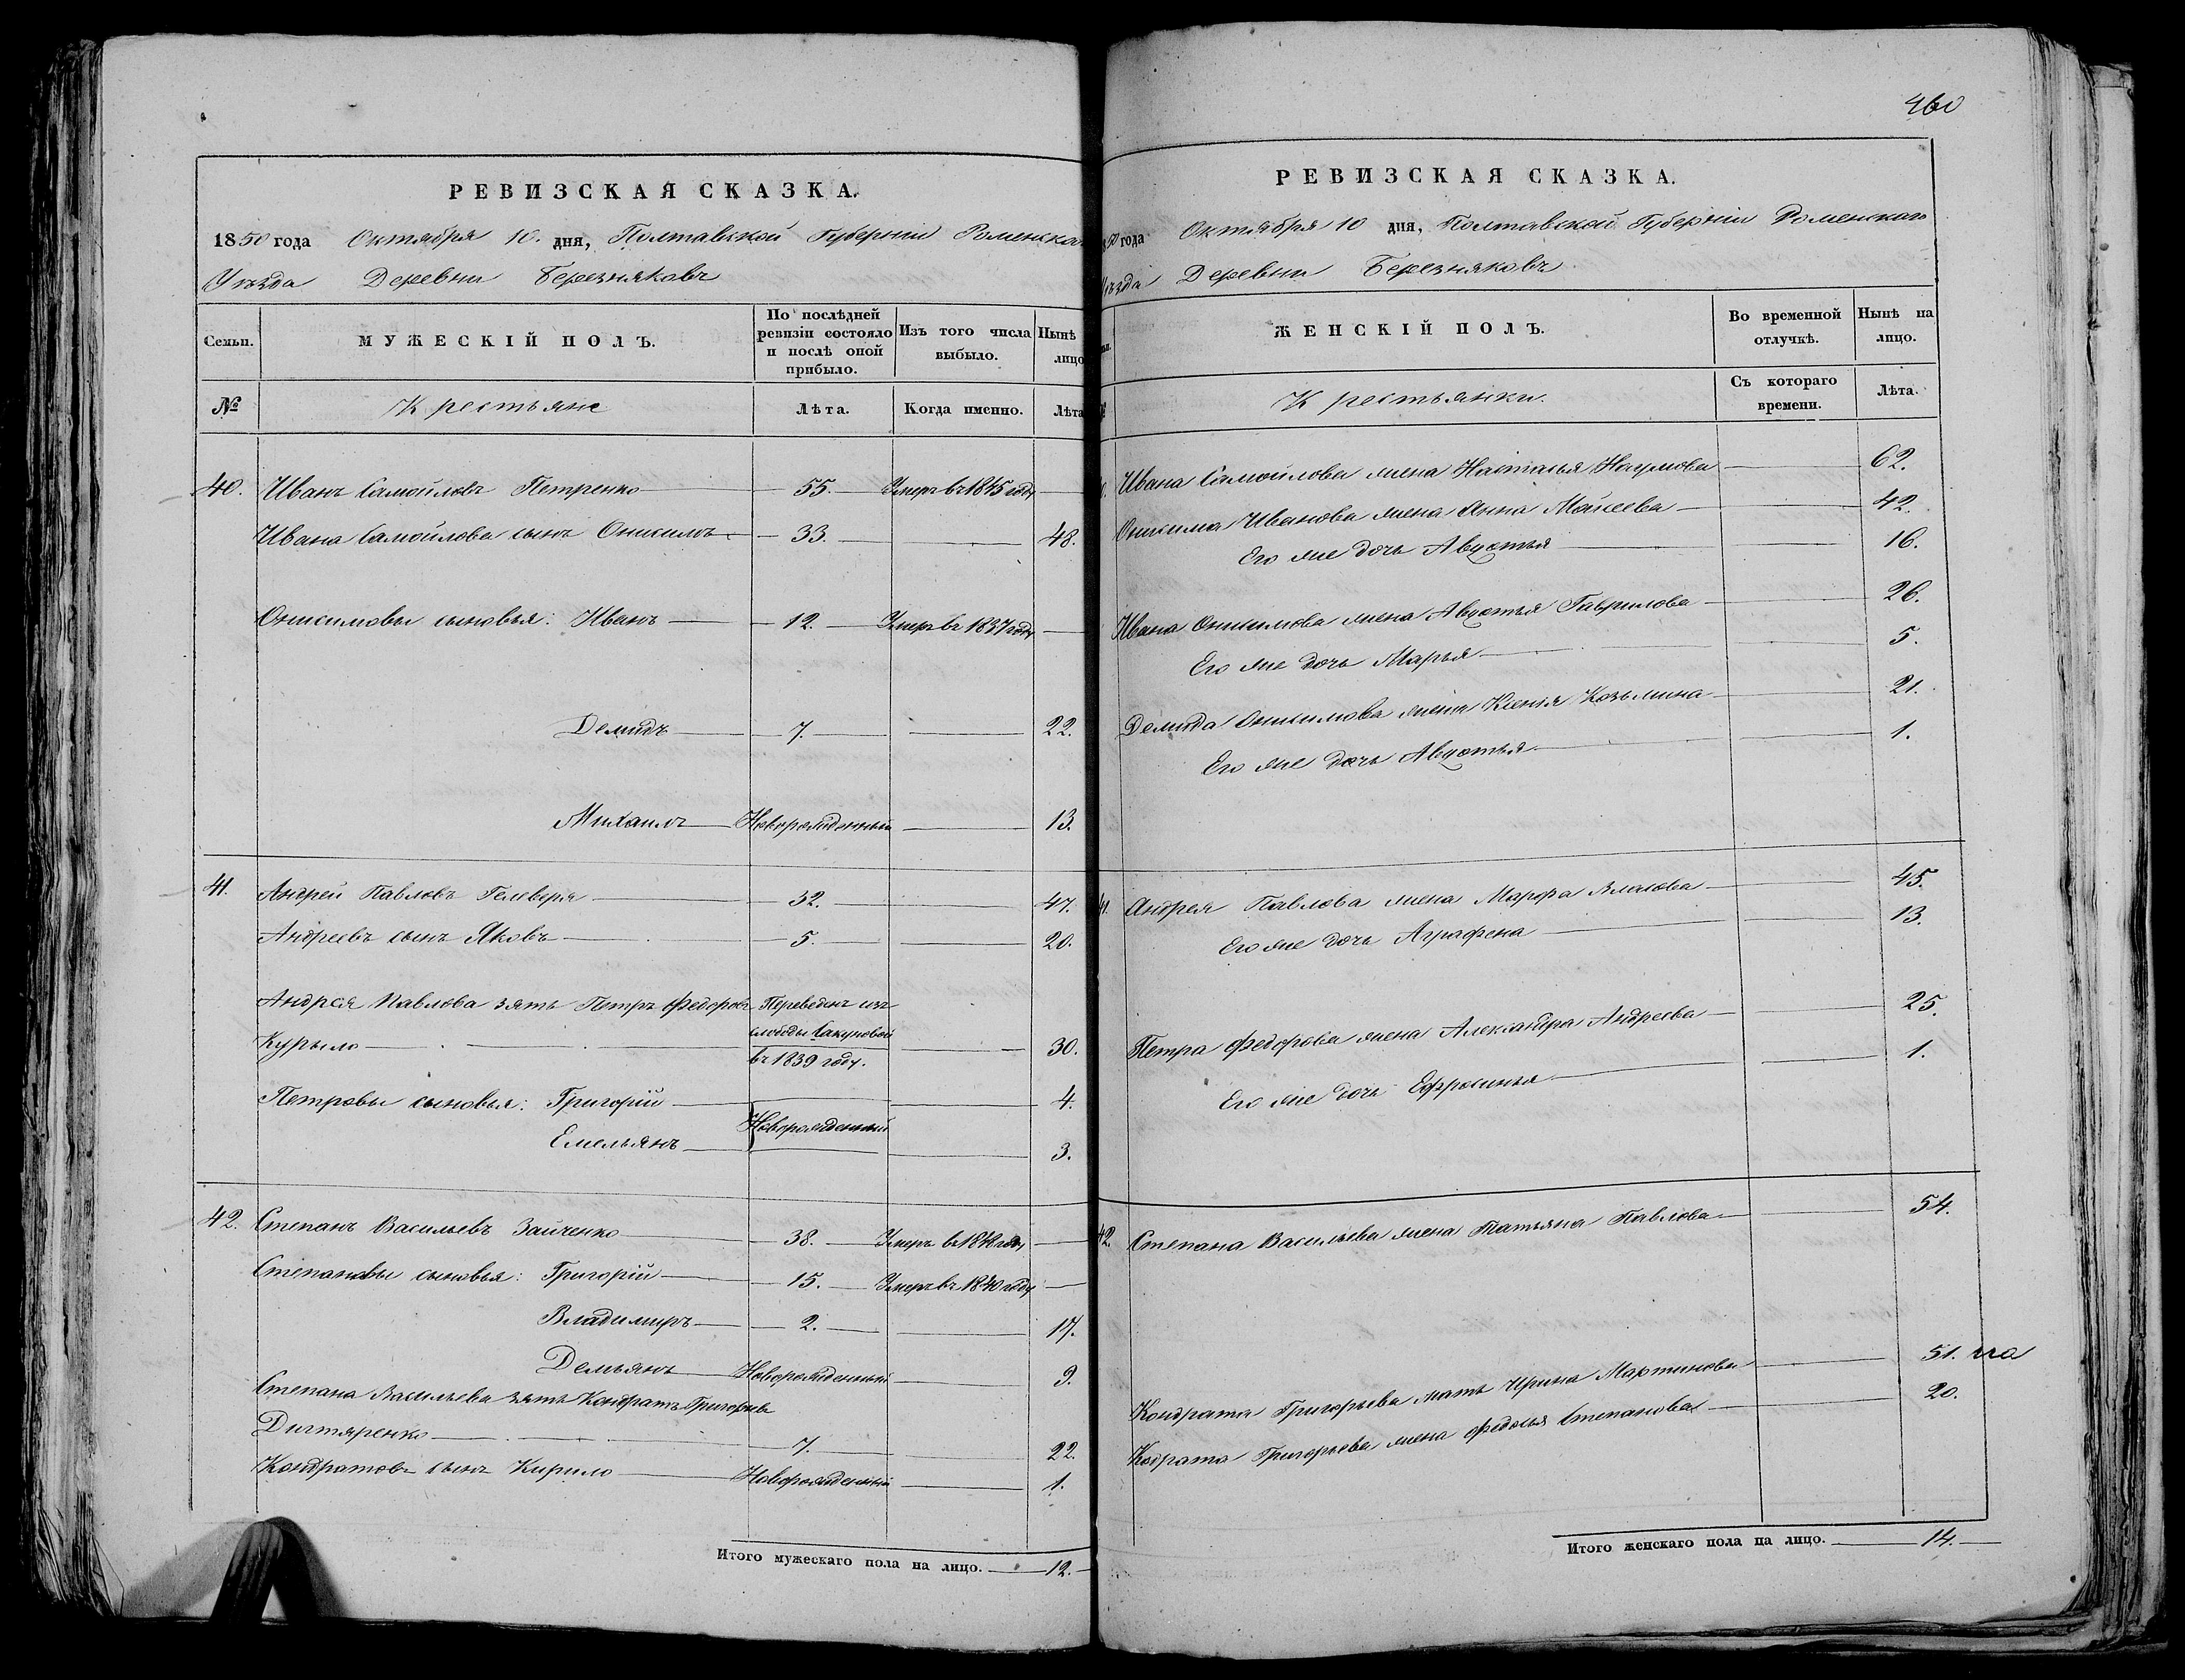 РЕВИЗСКАЯ СКАЗКА.
1850 года Октября 10. дня, Полтавской Губернии Роменска
Уѣзда Деревни Березняковъ
Семьи. МУЖЕСКІЙ ПОЛЪ. По послѣдней ревизіи состояло и послѣ оной прибыло. Изъ того числа выбыло. Нынѣ лицо
№ Крестьяне Лѣта. Когда именно. Лѣта
40. Иванъ Самойловъ Петренко 55. Умеръ въ 1845 году
Ивана Самойлова сынъ Онисимъ 33. 48.
Онисимовы сыновья: Иванъ 12. Умеръ въ 1837 году
Демидъ 7. 22.
Михаилъ Новорожденный 13.
41. Андрей Павловъ Гелеверя 32. 47.
Андреевъ сынъ Яковъ 5. 20.
Андрея Павлова зять Петръ Федоровъ Переведенъ изъ
слободы Сакуновой
Курыло 30.
въ 1839 году.
Петровы сыновья: Григорій 4.
Новорожденный
Емельянъ 3.
42. Степанъ Васильевъ Зайченко 38. Умеръ въ году
Степановы сыновья: Григорій 15. Умеръ въ 1840 году
Владимиръ 2. 17.
Демьянъ Новорожденный 9.
Степана Васильева зять Кондратъ Григорьевъ
Дигтяренко 7. 22.
Кондратовъ сынъ Кирило Новорожденный 1.
Итого мужескаго пола на лицо. 12.
460
РЕВИЗСКАЯ СКАЗКА.
50 года Октября 10 дня, Полтавской Губерніи Роменскаго
Уѣзда Деревни Березняковъ
ЖЕНСКІЙ ПОЛЪ. Во временной отлучкѣ. Нынѣ на лицо.
Крестьянки. Съ котораго времени. Лѣта.
Ивана Самойлова жена Настасья Наумова 62.
Онисима Иванова жена Анна Моисеева 42.
Его же дочь Авдотья 16.
Ивана Онисимова жена Авдотья Гаврилова 26.
Его же дочь Марья 5.
Демида Онисимова жена Ксенія Козьмина 21.
Его же дочь Авдотья 1.
41. Андрея Павлова жена Марфа Власова 45.
Его же дочь Аграфена 13.
Петра Федорова жена Александра Андреева 25.
Его же дочь Ефросинья 1.
42. Степана Васильева жена Татьяна Павлова 54.
Кондрата Григорьева мать Ирина Мартинова 51.
Кодрата Григорьева жена Федосья Степанова 20.
Итого женскаго пола на лицо. 14.